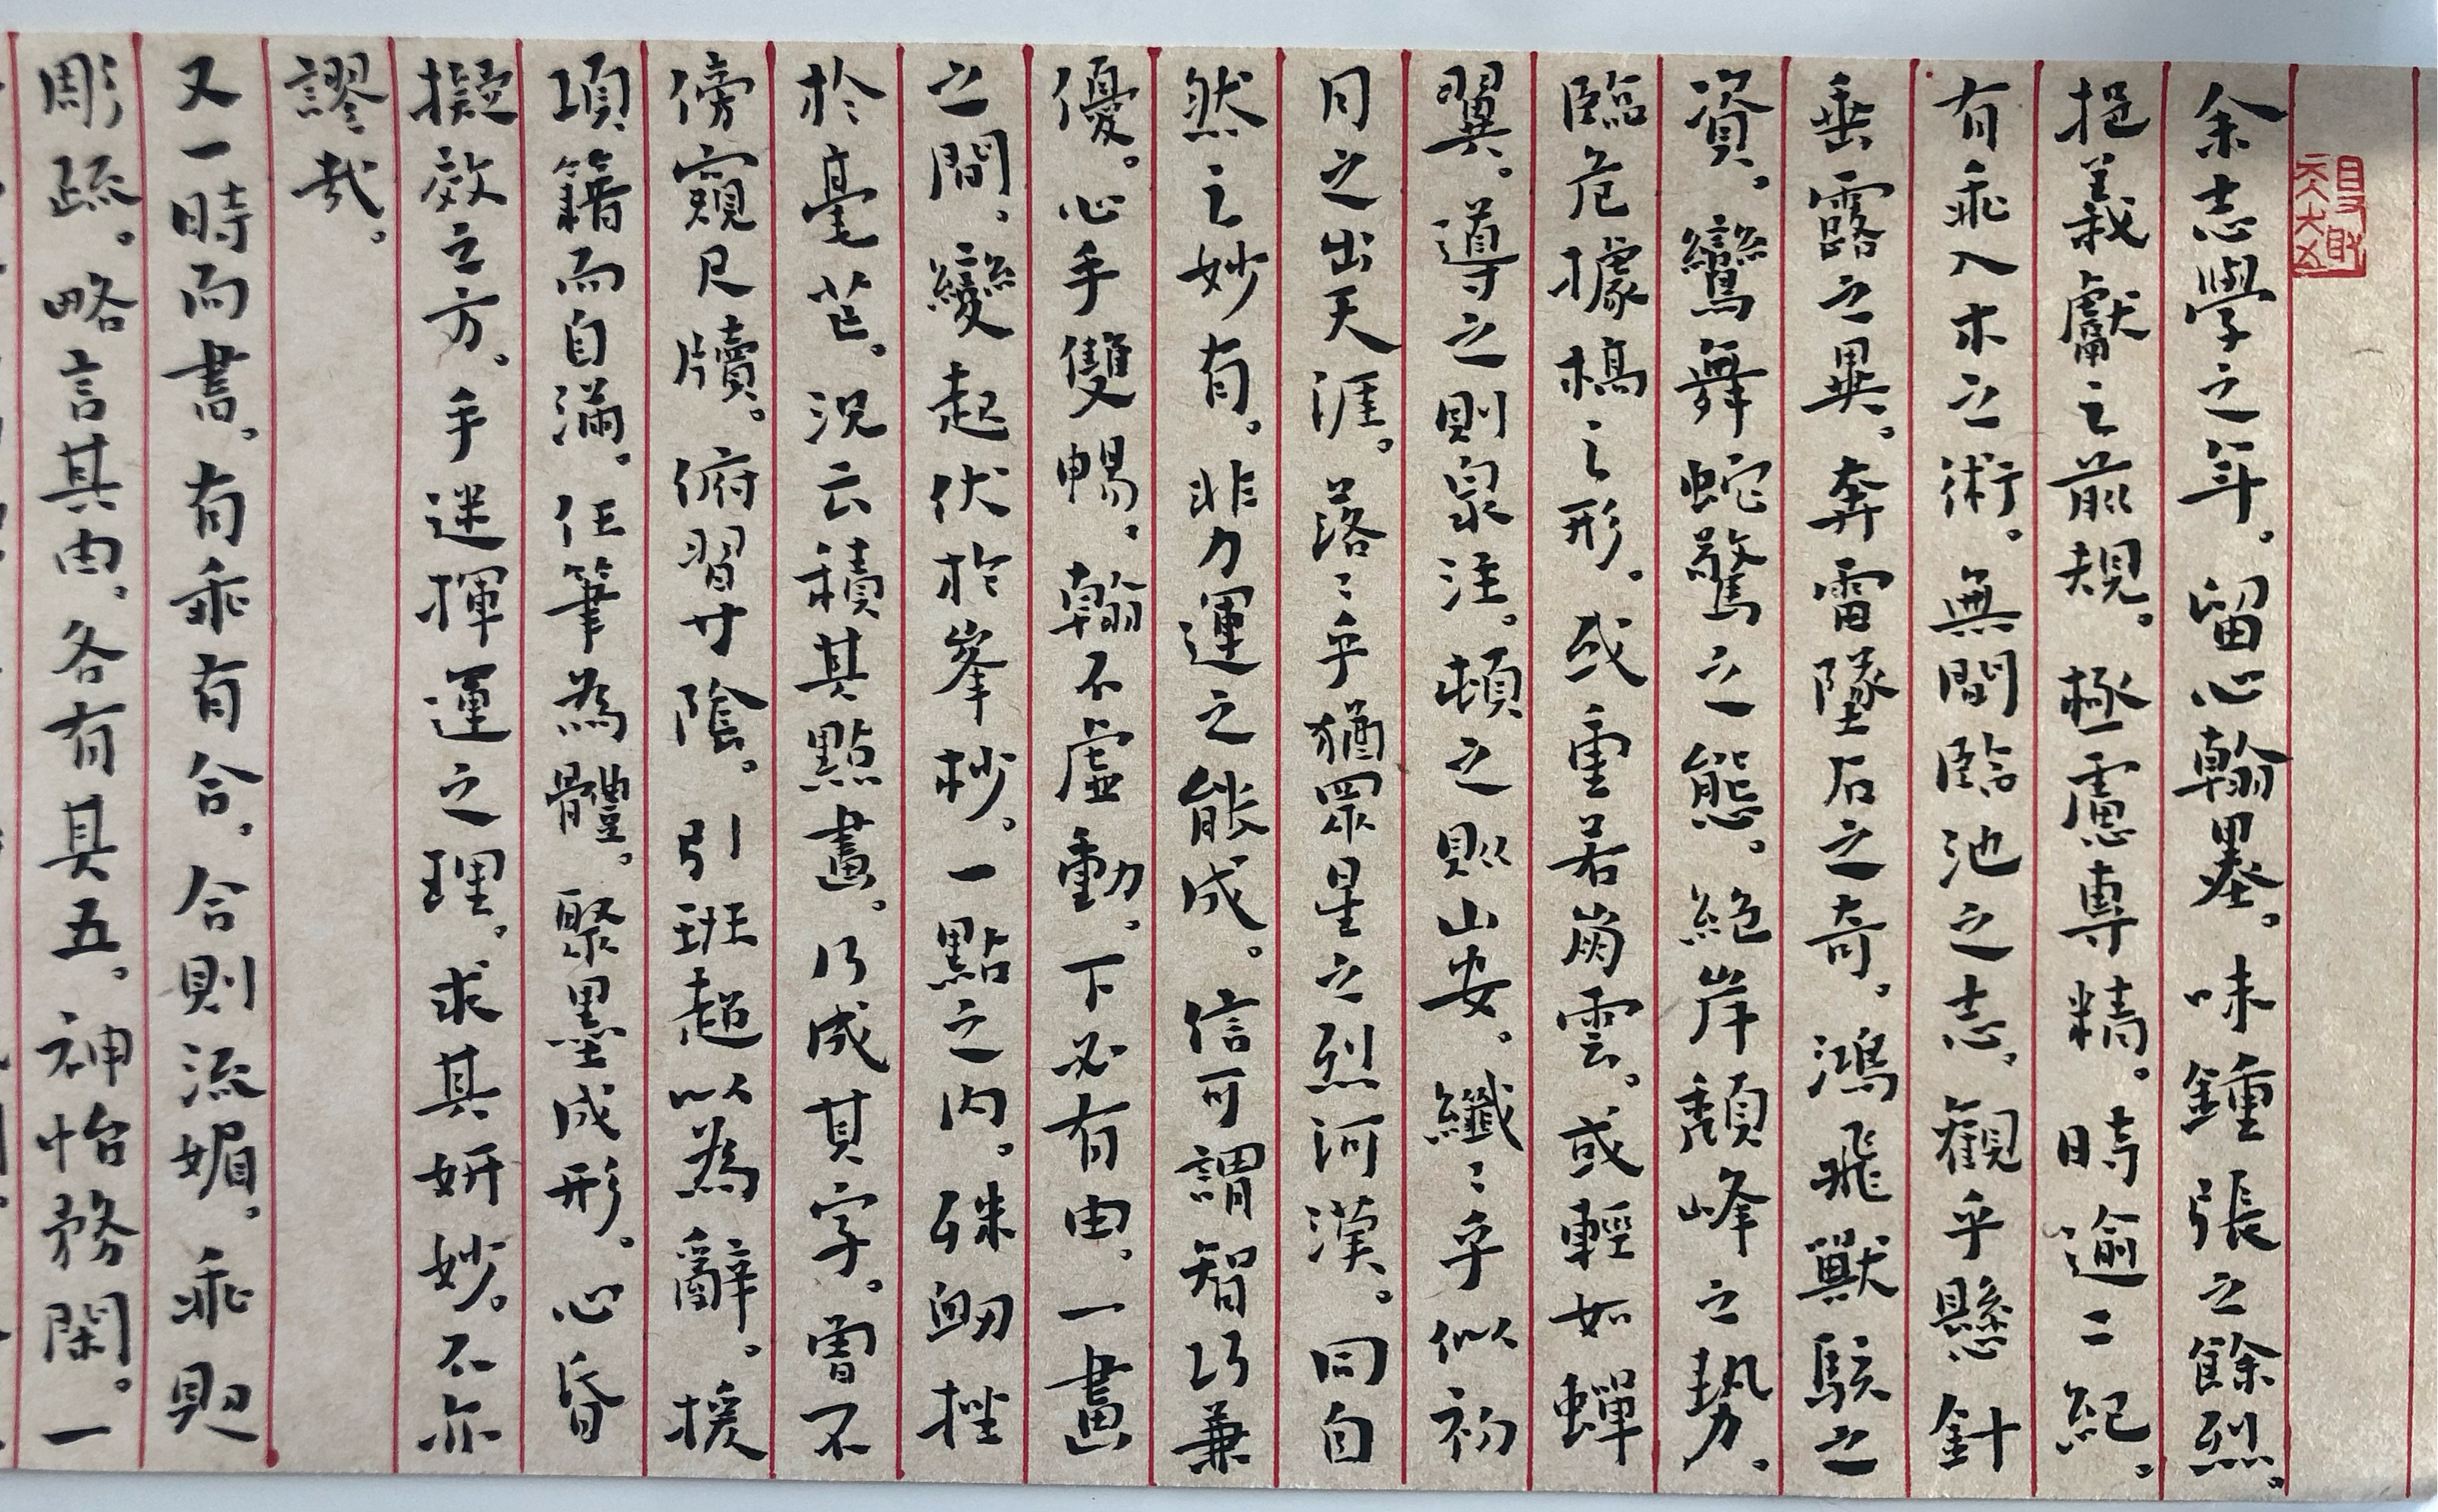 余志學之年。留心翰墨。味鍾張之餘烈。
挹羲獻之前規。極慮專精。時逾二紀。
有乖入木之術。無間臨池之志。觀乎懸針
垂露之異。奔雷墜石之奇。鴻飛獸駭之
資。鸞舞蛇驚之態。絕岸頹峰之勢。
臨危據槁之形。或重若崩雲。或輕如蟬
翼。導之則泉注。頓之則山安。纖〻乎似初
月之出天涯。落〻乎猶眾星之列河漢。同自
然之妙有。非力運之能成。信可謂智巧兼
優。心手雙暢。翰不虛動。下必有由。一畫
之間。變起伏於峯杪。一點之內。殊衂挫
於毫芒。況云積其點畫。乃成其字。曾不
傍窺尺牘。俯習寸陰。引班超以為辭。援
項籍而自滿。任筆為體。聚墨成形。心昏
擬效之方。手迷揮運之理。求其妍妙。不亦
謬哉。
又一時而書。有乖有合。合則流媚。乖則
彫疏。略言其由。各有其五。神怡務閑。一